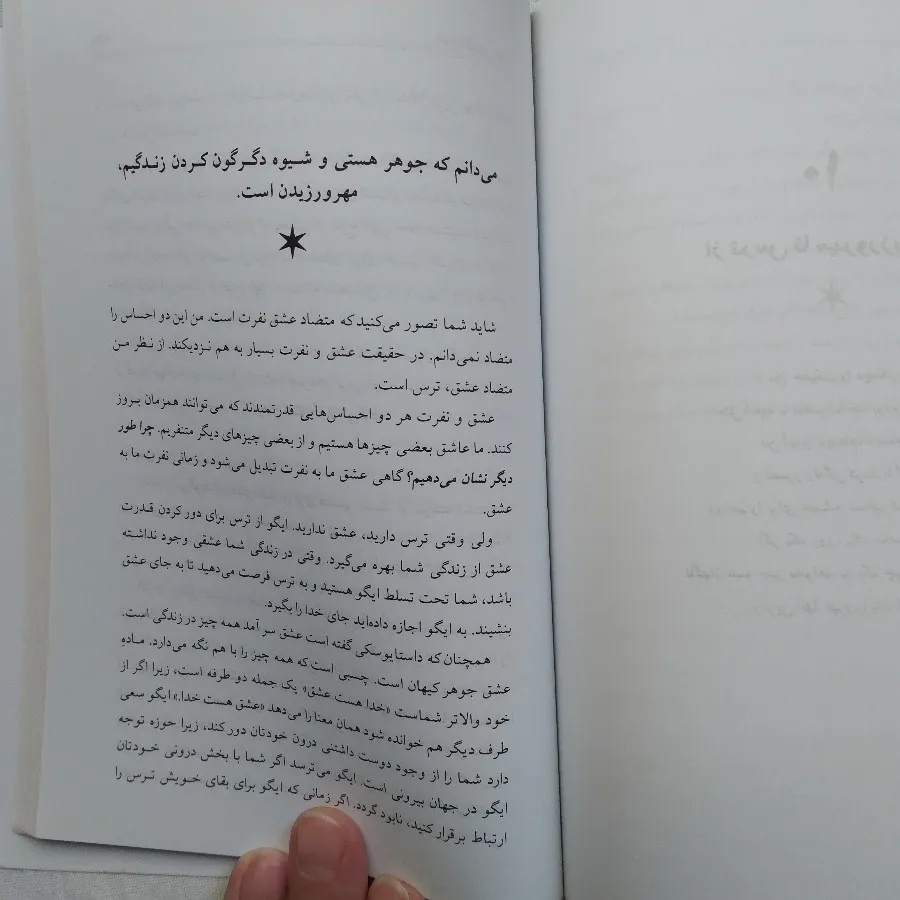 می‌دانم که جوهر هستی و شیوه دگرگون کردن زندگیم،
مهرورزیدن است.
شاید شما تصور می‌کنید که متضاد عشق نفرت است. من این دو احساس را
متضاد نمی‌دانم. در حقیقت عشق و نفرت بسیار به هم نزدیکند. از نظر من
متضاد عشق، ترس است.
عشق و نفرت هر دو احساس‌هایی قدرتمندند که می‌توانند همزمان بروز
کنند. ما عاشق بعضی چیزها هستیم و از بعضی چیزهای دیگر متنفریم. چرا طور
دیگر نشان می‌دهیم؟ گاهی عشق ما به نفرت تبدیل می‌شود و زمانی نفرت ما به
عشق.
ولی وقتی ترس دارید، عشق ندارید. ایگو از ترس برای دور کردن قدرت
عشق از زندگی شما بهره می‌گیرد. وقتی در زندگی شما عشقی وجود نداشته
باشد، شما تحت تسلط ایگو هستید و به ترس فرصت می‌دهید تا به جای عشق
بنشیند. به ایگو اجازه داده‌اید جای خدا را بگیرد.
همچنان که داستایوسکی گفته است عشق سر آمد همه چیز در زندگی است.
عشق جوهر کیهان است. چسبی است که همه چیز را با هم نگه می‌دارد. مادهٔ
خود والاتر شماست «خدا هست عشق» یک جمله دو طرفه است، زیرا اگر از
طرف دیگر هم خوانده شود همان معنا را می‌دهد «عشق هست خدا.» ایگو سعی
دارد شما را از وجود دوست داشتنی درون خودتان دور کند، زیرا حوزه توجه
ایگو در جهان بیرونی است. ایگو می‌ترسد اگر شما با بخش درونی خودتان
ارتباط برقرار کنید، نابود گردد. اگر زمانی که ایگو برای بقای خویش ترس را
۱۰
از ترس تا مهرورزی